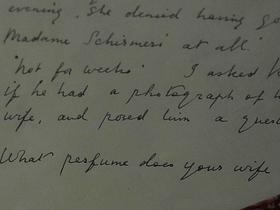 evening. "She denied having go
Madame Schismesi at all."
'Not for weeks' I asked h
if he had a photograph of h
wife, and posed him a quest
What perfume does your wife